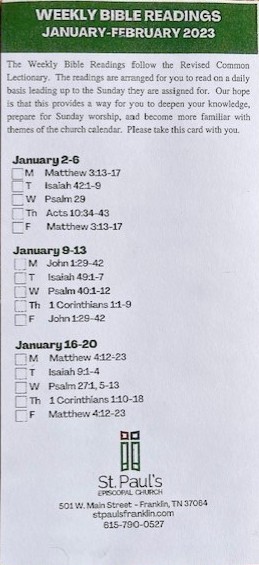 WEEKLY BIBLE READINGS
JANUARY-FEBRUARY 2023
The Weekly Bible Readings follow the Revised Common
Lectionary. The readings are arranged for you to read on a daily
basis leading up to the Sunday they are assigned for. Our hope
is that this provides a way for you to deepen your knowledge,
prepare for Sunday worship, and become more familiar with
themes of the church calendar. Please take this card with you.
January 2-6
M Matthew 3:13-17
T Isaiah 42:1-9
W Psalm 29
Th Acts 10:34-43
F Matthew 3:13-17
January 9-13
M John 1:29-42
T Isaiah 49:1-7
W Psalm 40:1-12
Th 1 Corinthians 1:1-9
F John 1:29-42
January 16-20
M Matthew 4:12-23
T Isaiah 9:1-4
W Psalm 27:1, 5-13
Th 1 Corinthians 1:10-18
F Matthew 4:12-23
St. Paul's
EPISCOPAL CHURCH
501 W. Main Street - Franklin, TN 37064
stpaulsfranklin.com
615-790-0527